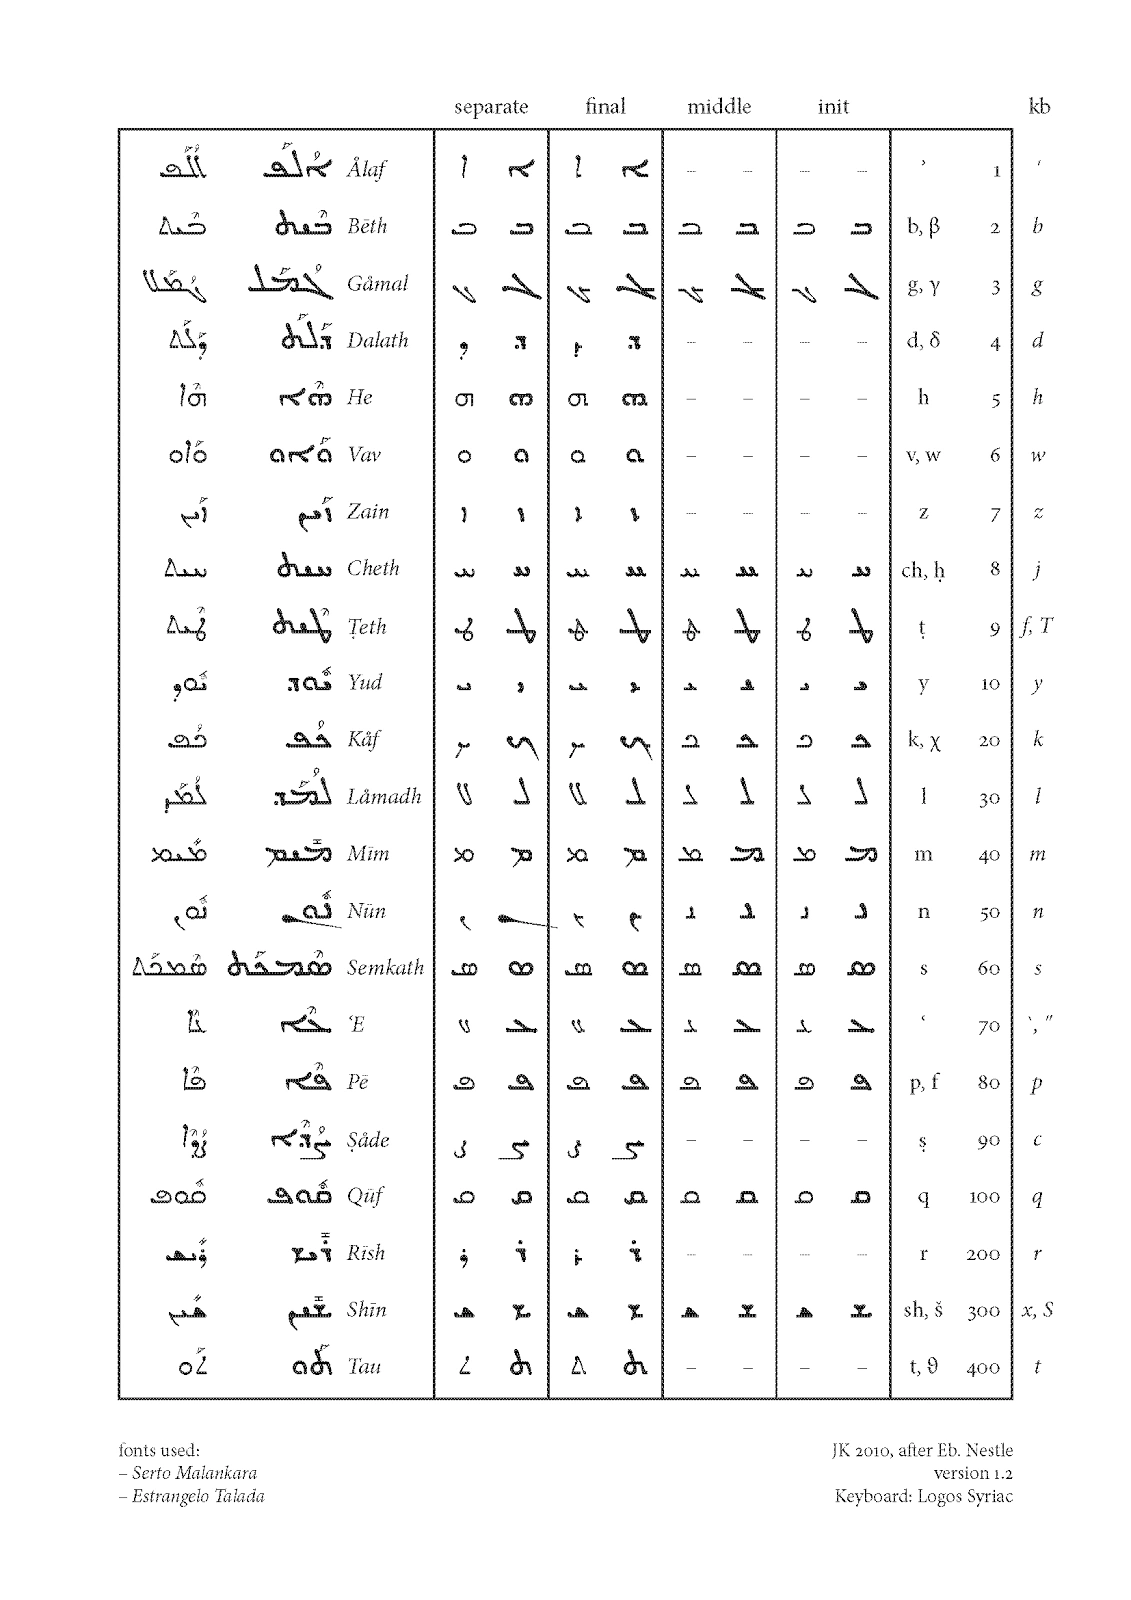 separate final middle init kb
ܐܠܦ ܐܠܦ Ålaf ܐ ܐ ܐ ܐ – – – – ʾ 1 ‘
ܒܝܬ ܒܝܬ Bēth ܒ ܒ ܒ ܒ ܒ ܒ ܒ ܒ b, β 2 b
ܓܡܠ ܓܡܠ Gåmal ܓ ܓ ܓ ܓ ܓ ܓ ܓ ܓ g, γ 3 g
ܕܠܬ ܕܠܬ Dalath ܕ ܕ ܕ ܕ – – – – d, δ 4 d
ܗܐ ܗܐ He ܗ ܗ ܗ ܗ – – – – h 5 h
ܘܐܘ ܘܐܘ Vav ܘ ܘ ܘ ܘ – – – – v, w 6 w
ܙܝܢ ܙܝܢ Zain ܙ ܙ ܙ ܙ – – – – z 7 z
ܚܝܬ ܚܝܬ Cheth ܚ ܚ ܚ ܚ ܚ ܚ ܚ ܚ ch, ḥ 8 j
ܛܝܬ ܛܝܬ Ṭeth ܛ ܛ ܛ ܛ ܛ ܛ ܛ ܛ ṭ 9 f, T
ܝܘܕ ܝܘܕ Yud ܝ ܝ ܝ ܝ ܝ ܝ ܝ ܝ y 10 y
ܟܦ ܟܦ Kåf ܟ ܟ ܟ ܟ ܟ ܟ ܟ ܟ k, χ 20 k
ܠܡܕ ܠܡܕ Låmadh ܠ ܠ ܠ ܠ ܠ ܠ ܠ ܠ l 30 l
ܡܝܡ ܡܝܡ Mīm ܡ ܡ ܡ ܡ ܡ ܡ ܡ ܡ m 40 m
ܢܘܢ ܢܘܢ Nūn ܢ ܢ ܢ ܢ ܢ ܢ ܢ ܢ n 50 n
ܣܡܟܬ ܣܡܟܬ Semkath ܣ ܣ ܣ ܣ ܣ ܣ ܣ ܣ s 60 s
ܥܐ ܥܐ ‘E ܥ ܥ ܥ ܥ ܥ ܥ ܥ ܥ ʿ 70 `, "
ܦܐ ܦܐ Pē ܦ ܦ ܦ ܦ ܦ ܦ ܦ ܦ p, f 80 p
ܨܕܐ ܨܕܐ Ṣåde ܨ ܨ ܨ ܨ – – – – ṣ 90 c
ܩܘܦ ܩܘܦ Qūf ܩ ܩ ܩ ܩ ܩ ܩ ܩ ܩ q 100 q
ܪܝܫ ܪܝܫ Rīsh ܪ ܪ ܪ ܪ – – – – r 200 r
ܫܝܢ ܫܝܢ Shīn ܫ ܫ ܫ ܫ ܫ ܫ ܫ ܫ sh, š 300 x, S
ܬܘ ܬܘ Tau ܬ ܬ ܬ ܬ – – – – t, ϑ 400 t
fonts used:
– Serto Malankara
– Estrangelo Talada
JK 2010, after Eb. Nestle
version 1.2
Keyboard: Logos Syriac